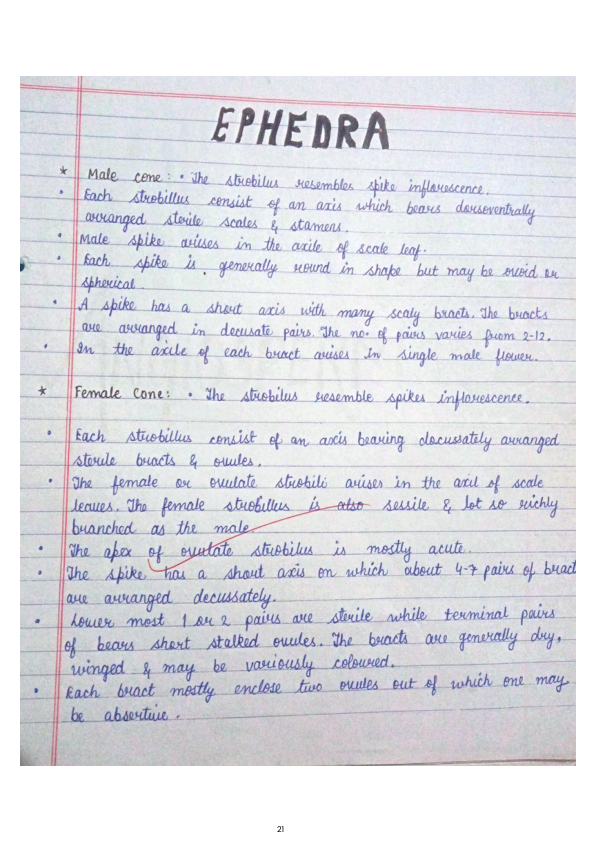 EPHEDRA
* Male cone : • The strobilus resembles spike inflorescence.
• Each strobillus consist of an axis which bears dorsoventrally
arranged sterile scales & stamens.
• Male spike arises in the axile of scale leaf.
• Each spike is generally round in shape but may be ovoid or
spherical.
• A spike has a short axis with many scaly bracts. The bracts
are arranged in decusate pairs. The no. of pairs varies from 2-12.
• In the axile of each bract arises in single male flower.
* Female Cone: • The strobilus resemble spikes inflorescence.
• Each strobillus consist of an axis bearing decussately arranged
sterile bracts & ovules.
• The female or ovulate strobili arises in the axil of scale
leaves. The female strobillus is also sessile & lot so richly
branched as the male.
• The apex of ovulate strobilus is mostly acute.
• The spike has a short axis on which about 4-7 pairs of bract
are arranged decussately.
• Lower most 1 or 2 pairs are sterile while terminal pairs
of bears short stalked ovules. The bracts are generally dry,
winged & may be variously coloured.
• Each bract mostly enclose two ovules out of which one may
be absertive.
21